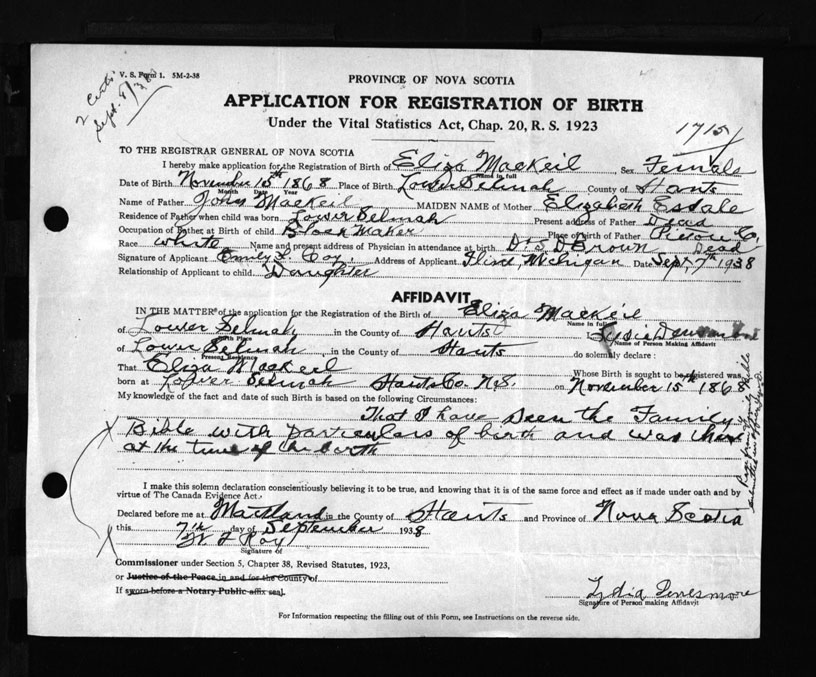 V. S. Form 1. 5M-2-38
2 Certs
Sept. 8/38
PROVINCE OF NOVA SCOTIA
APPLICATION FOR REGISTRATION OF BIRTH
Under the Vital Statistics Act, Chap. 20, R. S. 1923
1715
TO THE REGISTRAR GENERAL OF NOVA SCOTIA
I hereby make application for the Registration of Birth of Eliza MacKeil Sex Female
Name in full
Date of Birth November 15th 1868 Place of Birth Lower Selmah County of Hants
Month Date Year
Name of Father John MacKeil MAIDEN NAME of Mother Elizabeth Esdale
Residence of Father when child was born Lower Selmah Present address of Father Dead
Occupation of Father at Birth of child Block Maker Place of Birth of Father Pictou Co.
Race White Name and present address of Physician in attendance at birth Dr S. D Brown Dead
Signature of Applicant Emily L. Coy. Address of Applicant Flint, Michigan Date Sept. 7th 1938
Relationship of Applicant to child Daughter
AFFIDAVIT
IN THE MATTER of the application for the Registration of the Birth of Eliza MacKeil
Name in full
of Lower Selmah in the County of Hants I Lydia
Birth Place Name of Person Making Affidavit
of Lower Selmah in the County of Hants do solemnly declare:
Present Residence
That Eliza MacKeil Whose Birth is sought to be registered was
born at Lower Selmah Hants Co. N.S. on November 15th 1868
My knowledge of the fact and date of such Birth is based on the following Circumstances:
That I have seen the Family
Bible with particulars of birth and was there
at the time of the birth
I make this solemn declaration conscientiously believing it to be true, and knowing that it is of the same force and effect as if made under oath and by
virtue of The Canada Evidence Act.
Declared before me at Maitland in the County of Hants and Province of Nova Scotia
this 7th day of September 1938
W F Roy
Signature of
Commissioner under Section 5, Chapter 38, Revised Statutes, 1923,
or Justice of the Peace in and for the County of
If sworn before a Notary Public affix seal.
Lydia Densmore
Signature of Person making Affidavit
For Information respecting the filling out of this Form, see Instructions on the reverse side.